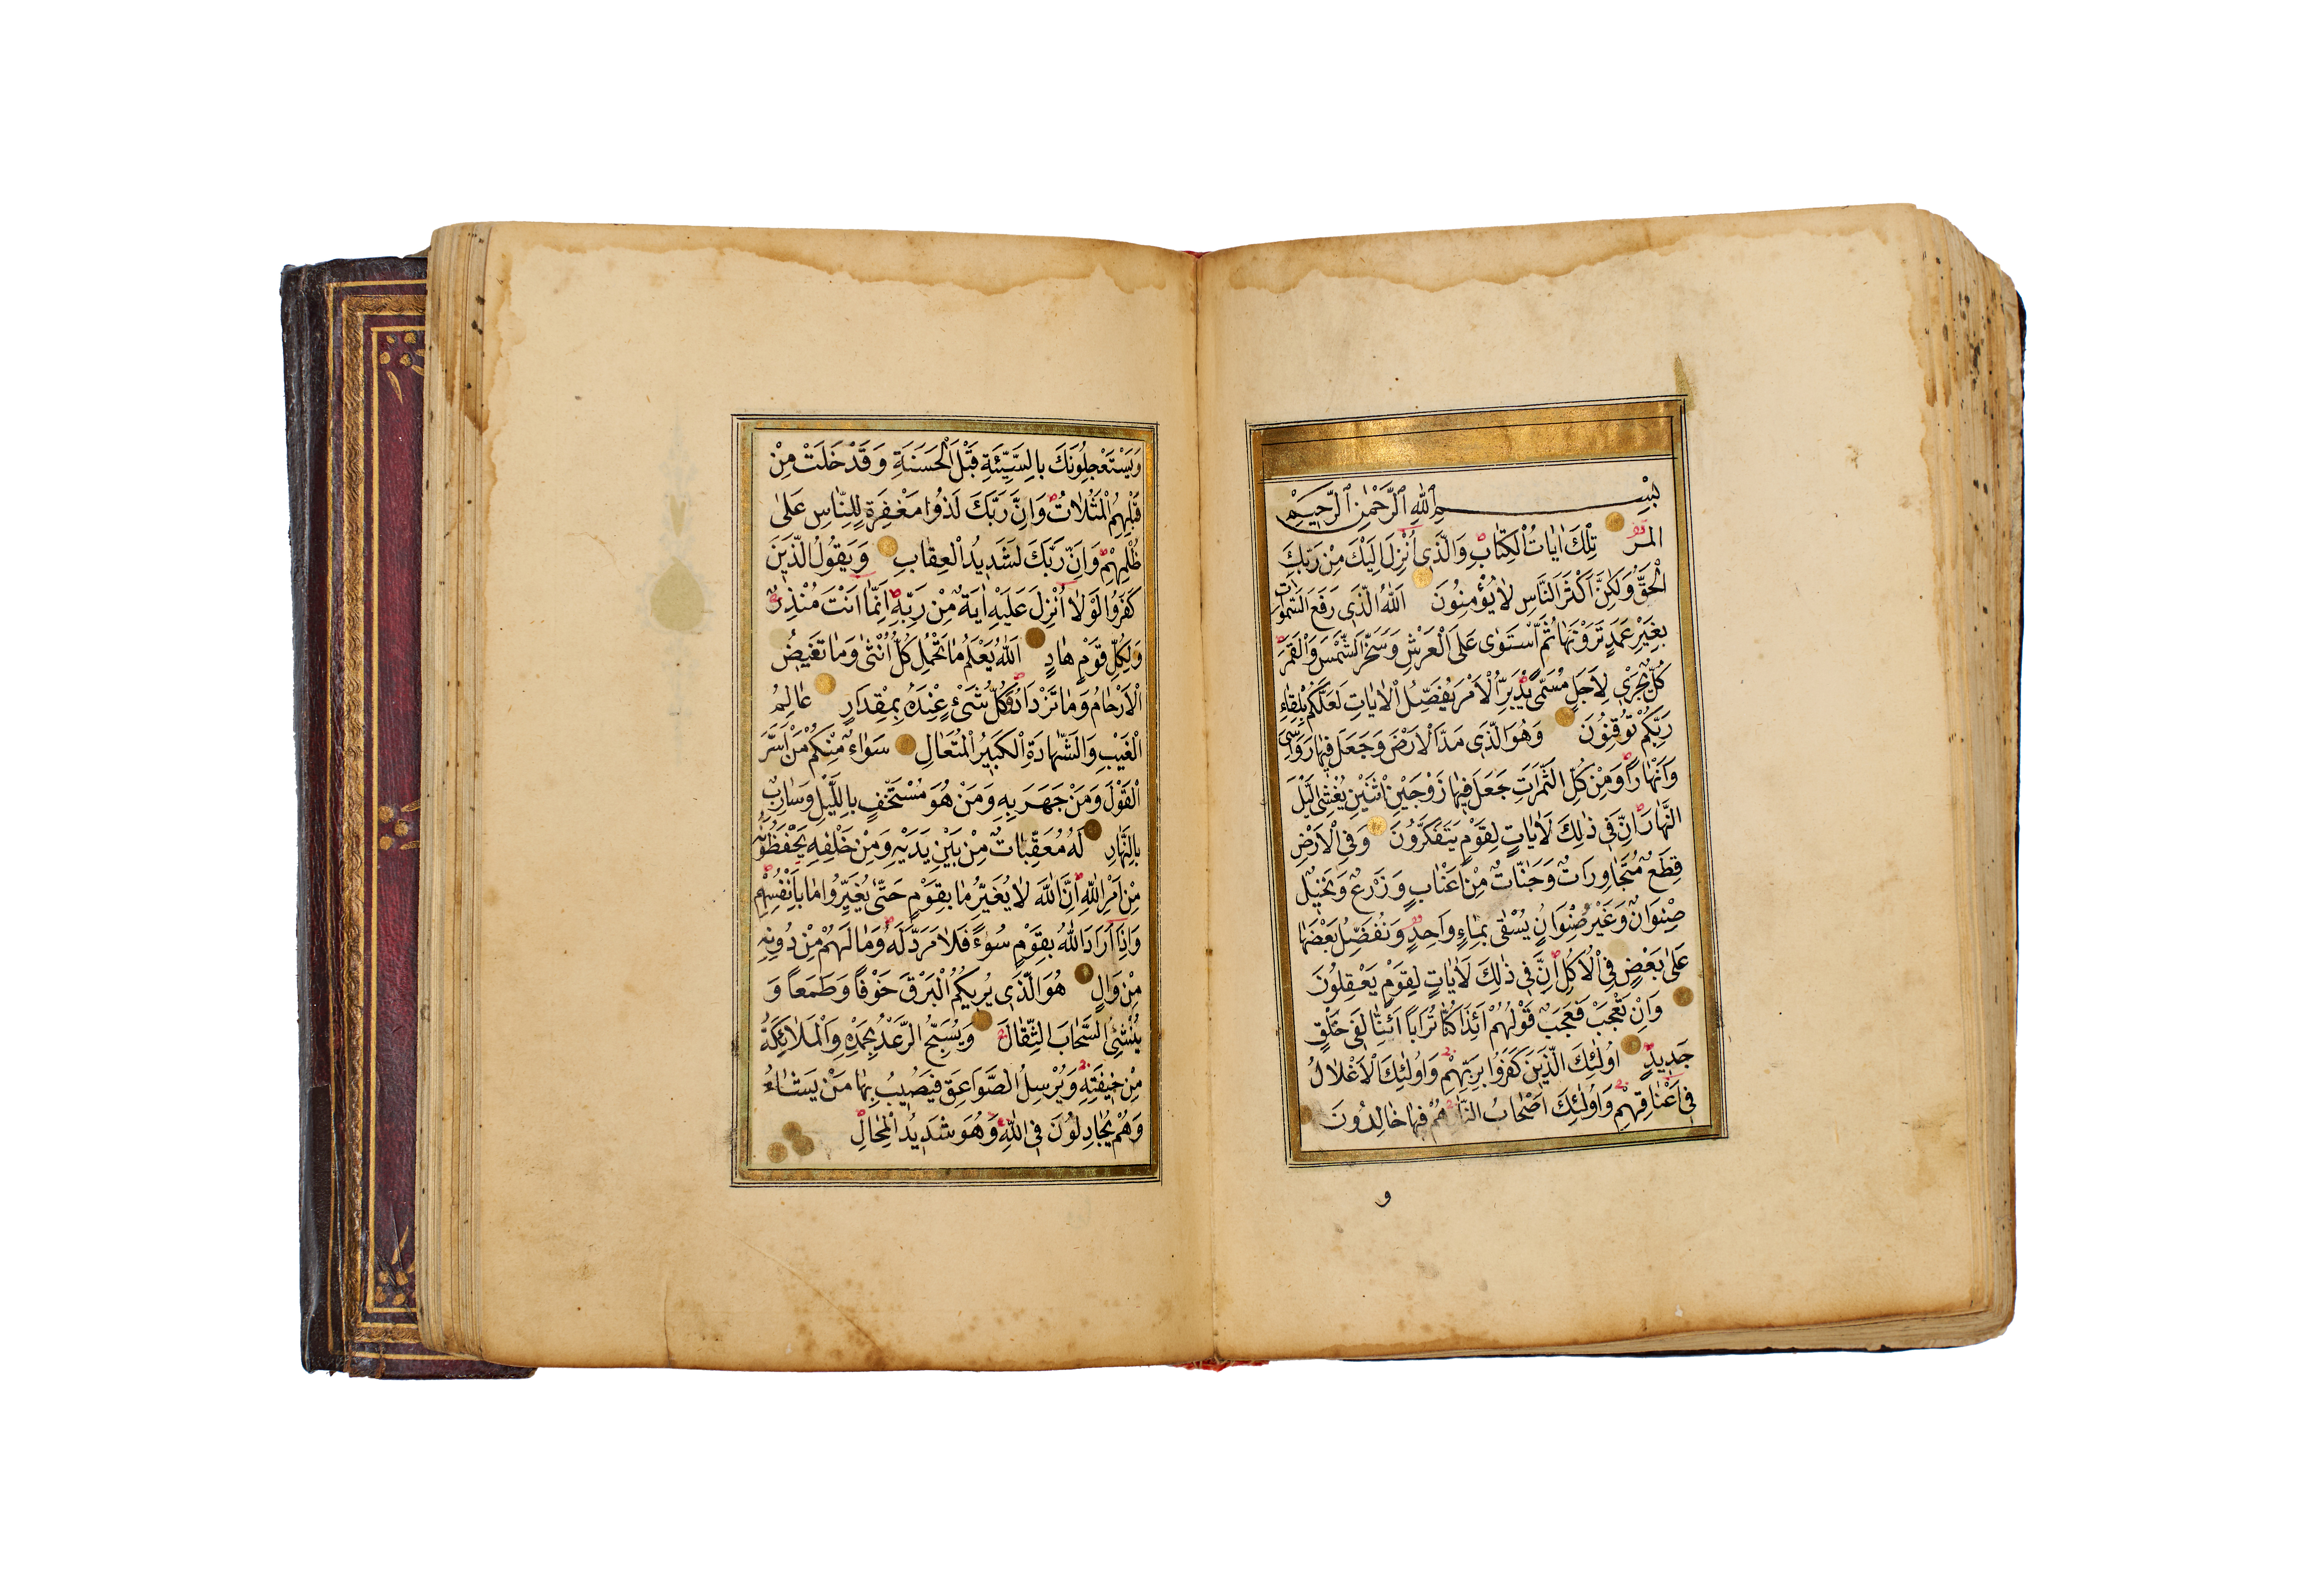 بِسْمِ اللهِ الرَّحْمٰنِ الرَّحِيمِ
الٓمٓرٰ تِلْكَ اٰيَاتُ الْكِتَابِ وَالَّذٖى اُنْزِلَ اِلَيْكَ مِنْ رَبِّكَ
الْحَقُّ وَلٰكِنَّ اَكْثَرَ النَّاسِ لَا يُؤْمِنُونَ اَللهُ الَّذٖى رَفَعَ السَّمٰوَاتِ
بِغَيْرِ عَمَدٍ تَرَوْنَهَا ثُمَّ اسْتَوٰى عَلَى الْعَرْشِ وَسَخَّرَ الشَّمْسَ وَالْقَمَرَ
كُلٌّ يَجْرٖى لِاَجَلٍ مُسَمًّى يُدَبِّرُ الْاَمْرَ يُفَصِّلُ الْاٰيَاتِ لَعَلَّكُمْ بِلِقَاءِ
رَبِّكُمْ تُوقِنُونَ وَهُوَ الَّذٖى مَدَّ الْاَرْضَ وَجَعَلَ فٖيهَا رَوَاسِىَ
وَاَنْهَارًا وَمِنْ كُلِّ الثَّمَرَاتِ جَعَلَ فٖيهَا زَوْجَيْنِ اثْنَيْنِ يُغْشِى الَّيْلَ
النَّهَارَ اِنَّ فٖى ذٰلِكَ لَاٰيَاتٍ لِقَوْمٍ يَتَفَكَّرُونَ وَفِى الْاَرْضِ
قِطَعٌ مُتَجَاوِرَاتٌ وَجَنَّاتٌ مِنْ اَعْنَابٍ وَزَرْعٌ وَنَخٖيلٌ
صِنْوَانٌ وَغَيْرُ صِنْوَانٍ يُسْقٰى بِمَاءٍ وَاحِدٍ وَنُفَضِّلُ بَعْضَهَا
عَلٰى بَعْضٍ فِى الْاُكُلِ اِنَّ فٖى ذٰلِكَ لَاٰيَاتٍ لِقَوْمٍ يَعْقِلُونَ
وَاِنْ تَعْجَبْ فَعَجَبٌ قَوْلُهُمْ ءَاِذَا كُنَّا تُرَابًا ءَاِنَّا لَفٖى خَلْقٍ
جَدٖيدٍ اُولٰئِكَ الَّذٖينَ كَفَرُوا بِرَبِّهِمْ وَاُولٰئِكَ الْاَغْلَالُ
فٖى اَعْنَاقِهِمْ وَاُولٰئِكَ اَصْحَابُ النَّارِ هُمْ فٖيهَا خَالِدُونَ
و
وَيَسْتَعْجِلُونَكَ بِالسَّيِّئَةِ قَبْلَ الْحَسَنَةِ وَقَدْ خَلَتْ مِنْ
قَبْلِهِمُ الْمَثُلَاتُ وَاِنَّ رَبَّكَ لَذُوا مَغْفِرَةٍ لِلنَّاسِ عَلٰى
ظُلْمِهِمْ وَاِنَّ رَبَّكَ لَشَدٖيدُ الْعِقَابِ وَيَقُولُ الَّذٖينَ
كَفَرُوا لَوْلَا اُنْزِلَ عَلَيْهِ اٰيَةٌ مِنْ رَبِّهٖ اِنَّمَا اَنْتَ مُنْذِرٌ
وَلِكُلِّ قَوْمٍ هَادٍ اَللهُ يَعْلَمُ مَا تَحْمِلُ كُلُّ اُنْثٰى وَمَا تَغٖيضُ
الْاَرْحَامُ وَمَا تَزْدَادُ وَكُلُّ شَىْءٍ عِنْدَهُ بِمِقْدَارٍ عَالِمُ
الْغَيْبِ وَالشَّهَادَةِ الْكَبٖيرُ الْمُتَعَالِ سَوَاءٌ مِنْكُمْ مَنْ اَسَرَّ
الْقَوْلَ وَمَنْ جَهَرَ بِهٖ وَمَنْ هُوَ مُسْتَخْفٍ بِالَّيْلِ وَسَارِبٌ
بِالنَّهَارِ لَهُ مُعَقِّبَاتٌ مِنْ بَيْنِ يَدَيْهِ وَمِنْ خَلْفِهٖ يَحْفَظُونَهُ
مِنْ اَمْرِ اللهِ اِنَّ اللهَ لَا يُغَيِّرُ مَا بِقَوْمٍ حَتّٰى يُغَيِّرُوا مَا بِاَنْفُسِهِمْ
وَاِذَا اَرَادَ اللهُ بِقَوْمٍ سُوءًا فَلَا مَرَدَّ لَهُ وَمَا لَهُمْ مِنْ دُونِهٖ
مِنْ وَالٍ هُوَ الَّذٖى يُرٖيكُمُ الْبَرْقَ خَوْفًا وَطَمَعًا وَ
يُنْشِئُ السَّحَابَ الثِّقَالَ وَيُسَبِّحُ الرَّعْدُ بِحَمْدِهٖ وَالْمَلٰائِكَةُ
مِنْ خٖيفَتِهٖ وَيُرْسِلُ الصَّوَاعِقَ فَيُصٖيبُ بِهَا مَنْ يَشَاءُ
وَهُمْ يُجَادِلُونَ فِى اللهِ وَهُوَ شَدٖيدُ الْمِحَالِ